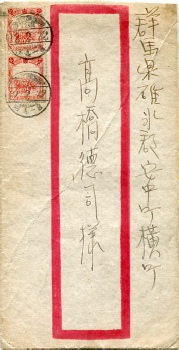 群馬県碓氷郡安中町横町
高橋德司様